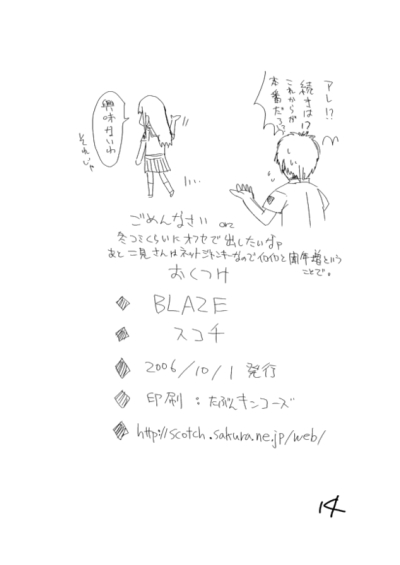 アレ!?
続きは!?
これからが
本番だろ?
興味ないわ
それじゃ
ごめんなさい orz
冬コミくらいにオフセで出したいなァ
あと二見さんはネットジャンキーなので仇仇と 年増という
ことで。
おくつけ
BLAZE
スコチ
2006/10/1 発行
印刷：たぶんキンコーズ
http://scotch.sakura.ne.jp/web/
14